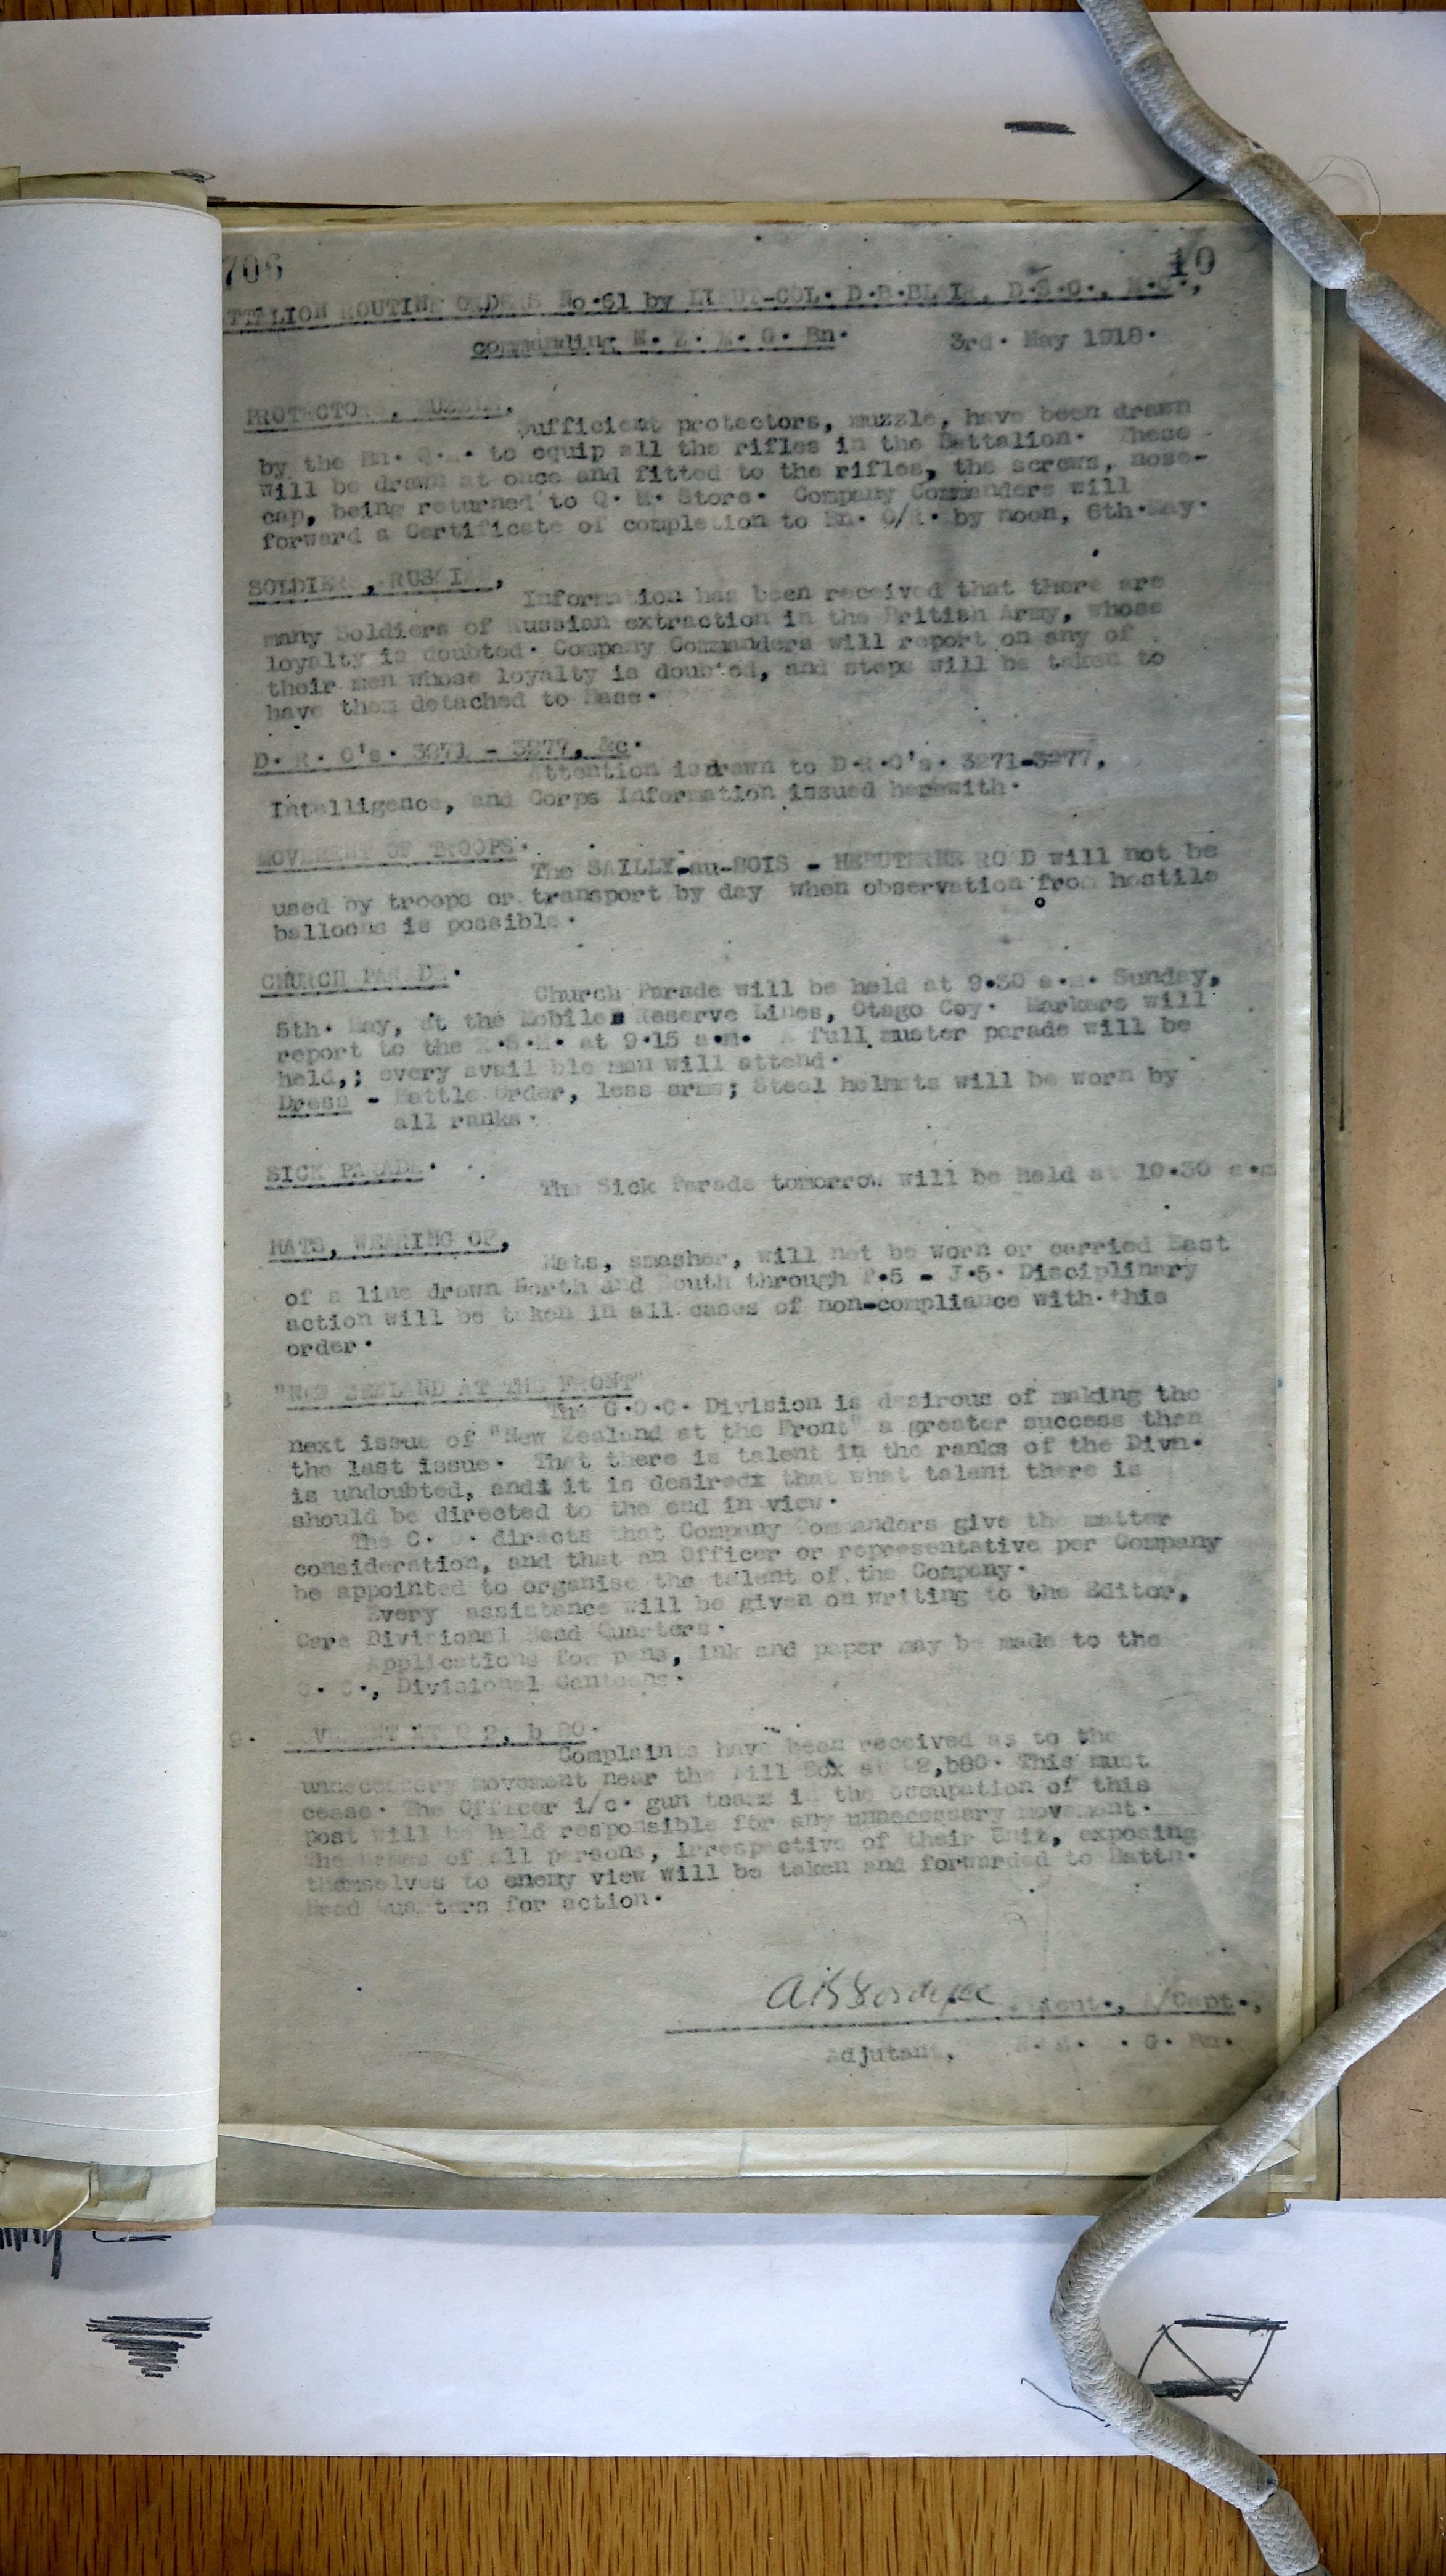 706
10
TTALION ROUTINE ORDERS No.61 by LIEUT-COL. D.B.BLAIR, D.S.O., M.C.,
commanding N. Z. M. G. Bn.
3rd. May 1918.
PROTECTORS, MUZZLE,
Sufficient protectors, muzzle, have been drawn
by the Bn. Q.M. to equip all the rifles in the Battalion. These
will be drawn at once and fitted to the rifles, the screws, nose-
cap, being returned to Q. M. Store. Company Commanders will
forward a Certificate of completion to Bn. O/R. by noon, 6th.May.
SOLDIERS, RUSSIAN,
Information has been received that there are
many Soldiers of Russian extraction in the British Army, whose
loyalty is doubted. Company Commanders will report on any of
their men whose loyalty is doubted, and steps will be taken to
have them detached to Base.
D. R. O's. 3271 - 3277, &c.
Attention is drawn to D.R.O's. 3271-3277,
Intelligence, and Corps Information issued herewith.
MOVEMENT OF TROOPS.
The SAILLY-au-BOIS - HEBUTERNE RO D will not be
used by troops or transport by day when observation from hostile
balloons is possible.
CHURCH PARADE.
Church Parade will be held at 9.30 a.m. Sunday,
5th. May, at the Mobile Reserve Lines, Otago Coy. Markers will
report to the R.S.M. at 9.15 a.m. A full muster parade will be
held,; every avail ble man will attend.
Dress - Battle Order, less arms; Steel helmets will be worn by
all ranks.
SICK PARADE.
The Sick Parade tomorrow will be held at 10.30 a.m
HATS, WEARING OF,
Hats, smasher, will not be worn or carried East
of a line drawn North and South through P.5 - J.5. Disciplinary
action will be taken in all cases of non-compliance with this
order.
"NEW ZEALAND AT THE FRONT"
The G.O.C. Division is desirous of making the
next issue of "New Zealand at the Front" a greater success than
the last issue. That there is talent in the ranks of the Divn.
is undoubted, and it is desired that what talent there is
should be directed to the end in view.
The C. O. directs that Company Commanders give the matter
consideration, and that an Officer or representative per Company
be appointed to organise the talent of the Company.
Every assistance will be given on writing to the Editor,
Care Divisional Head Quarters.
Applications for pens, ink and paper may be made to the
O. C., Divisional Canteens.
9. MOVEMENT AT 2, b 80.
Complaints have been received as to the
unnecessary movement near the Pill Box at 2,b80. This must
cease. The Officer i/c. gun teams in the occupation of this
post will be held responsible for any unnecessary movement.
The names of all persons, irrespective of their Unit, exposing
themselves to enemy view will be taken and forwarded to Battn.
Head Quarters for action.
Lieut., /Capt.,
Adjutant, . G. Bn.